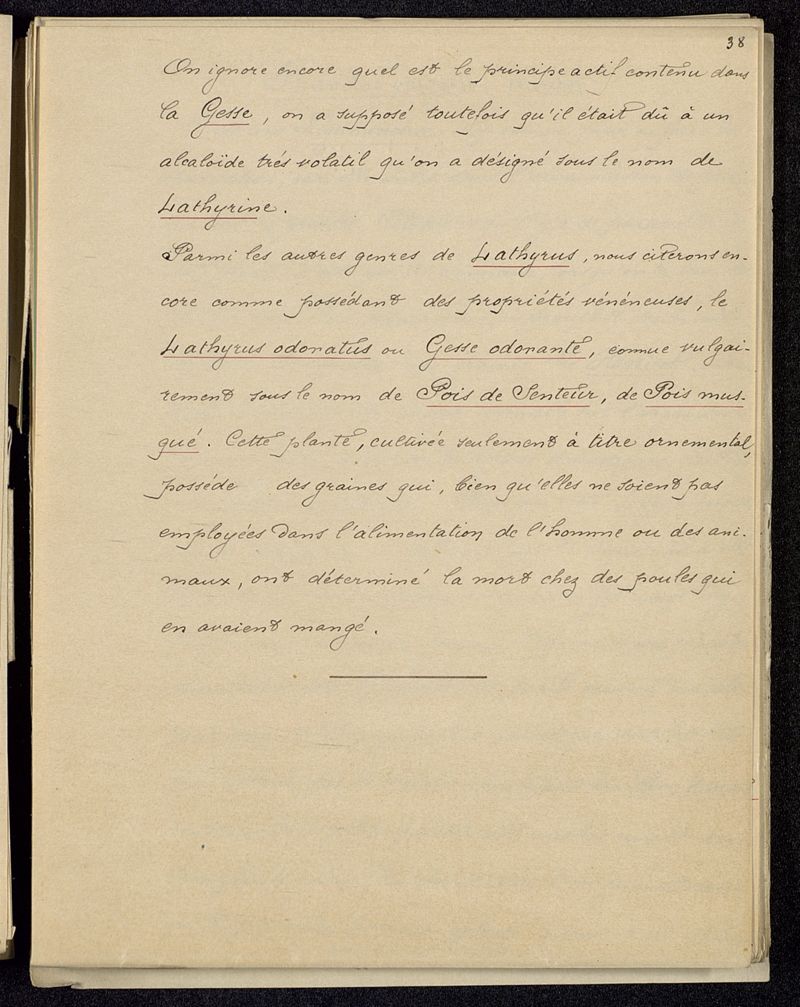 38
On ignore encore quel est le principe actif contenu dans
la Gesse, on a supposé toutefois qu'il était dû à un
alcaloïde trés volatil qu'on a désigné sous le nom de
Lathyrine.
Parmi les autres genres de Lathyrus, nous citerons en-
core comme possédant des propriétés vénéneuses, le
Lathyrus odoratus ou Gesse odorante, connue vulgai-
rement sous le nom de Pois de Senteur, de Pois mus-
qué. Cette plante, cultivée seulement à titre ornemental,
posséde des graines qui, bien qu'elles ne soient pas
employées dans l'alimentation de l'homme ou des ani-
maux, ont déterminé la mort chez des poules qui
en avaient mangé.